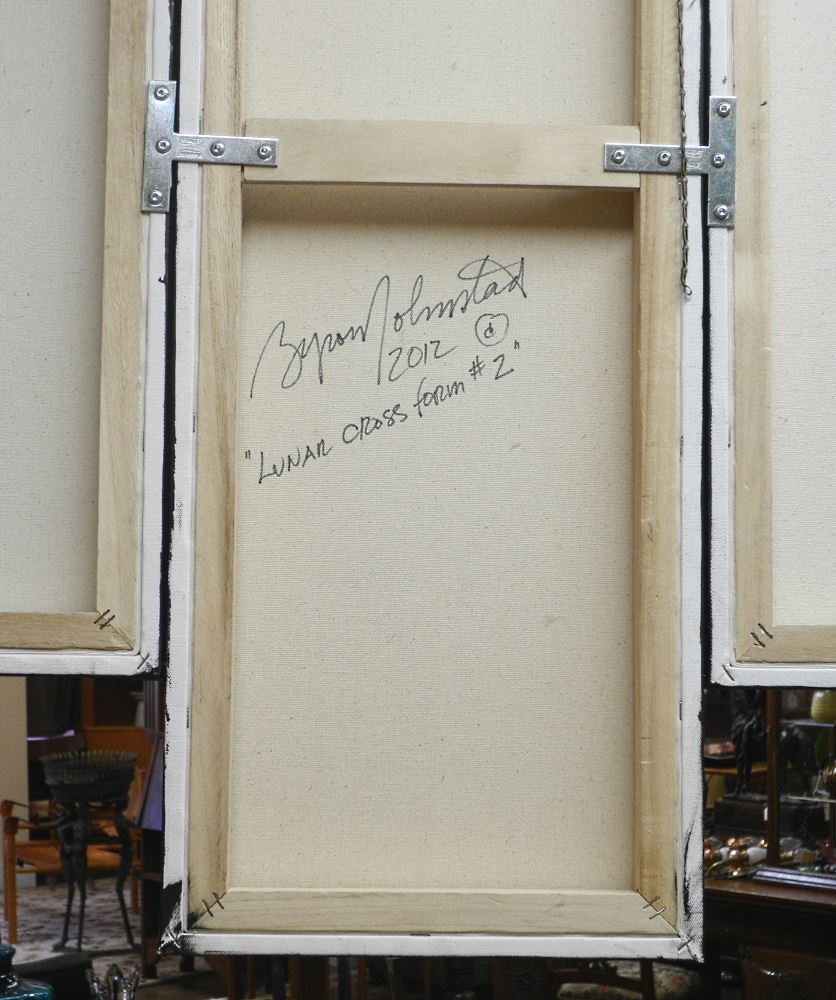 Byron Holmstad
2012 ©
"LUNAR CROSS form # 2"